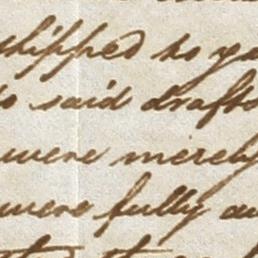 shipped to yo
to said drafts
were merely
were fully au